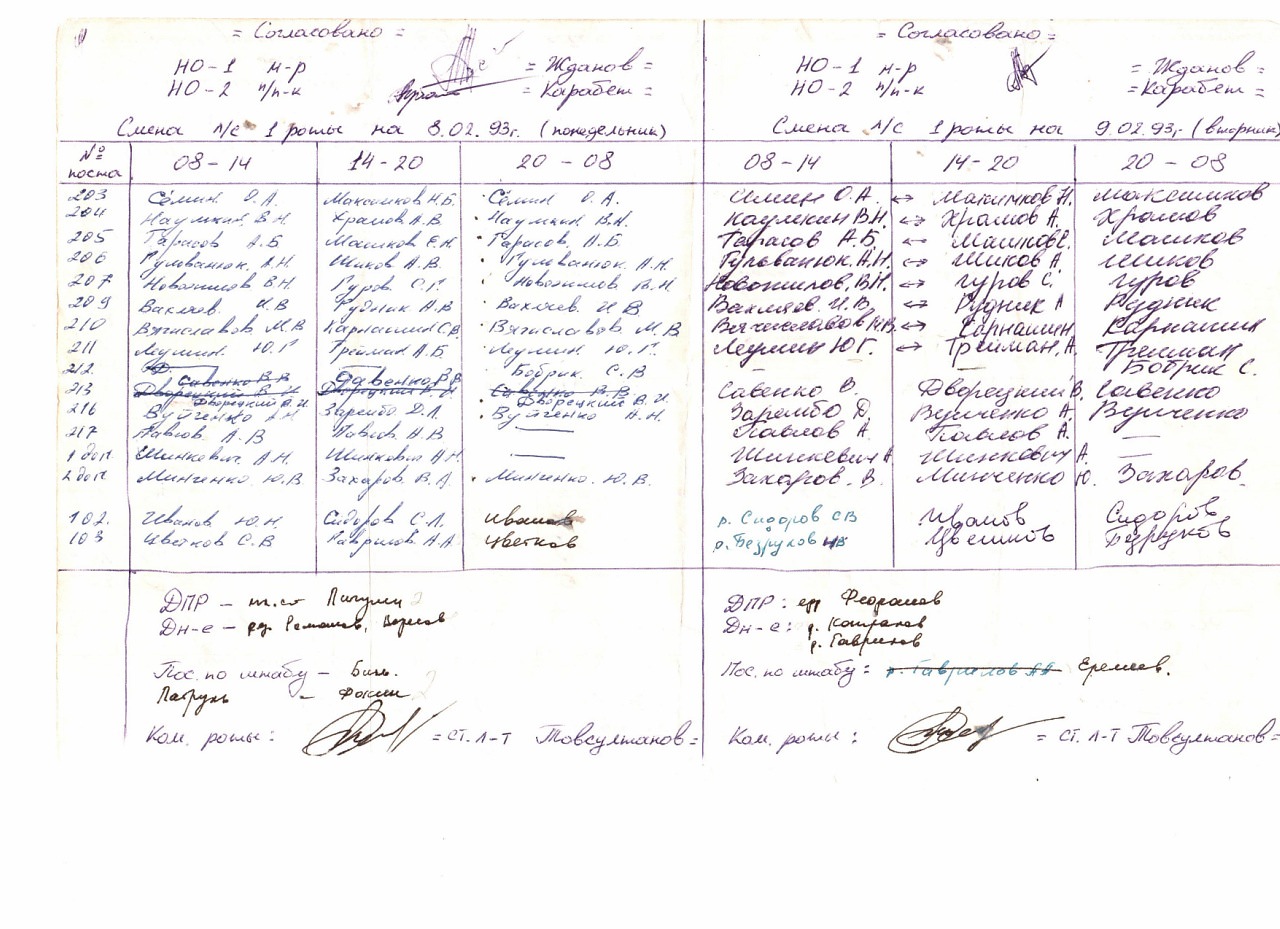 = Согласовано =
НО-1 м-р = Жданов =
НО-2 п/п-к = Карабет =
Смена л/с 1 роты на 8.02.93г. (понедельник)
№ поста 08-14 14-20 20-08
203 Сёмин О.А. Максимков Н.Б. Сёмин О.А.
204 Наумкин В.Н. Храмов А.В. Наумкин В.Н.
205 Тарасов А.Б Машков Е.Н. Тарасов А.Б
206 Гулованюк А.Н. Шиков А.В. Гулованюк А.Н.
207 Новожилов В.Н. Гуров С.Г. Новожилов В.Н
209 Вахляев И.В Рудник А.В Вахляев И.В
210 Вячиславов М.В Карнашин С.В. Вячиславов М.В
211 Леумин Ю.Г Трейман А.Б. Леумин Ю.Г.
212 Савенко В.В Савенко В.В Бобрик С.В
213 Дворецкий В.И Дворецкий В.И Савенко В.В
Дворецкий В.И Дворецкий В.И
216 Вуйченко А.Н Зарембо Д.Л. Вуйченко А.Н.
217 Павлов А.В Павлов А.В —
1 доп. Шинкевич А.Н. Шинкевич А.Н —
2 доп Минченко Ю.В Захаров В.А. Минченко Ю.В.
102. Иванов Ю.Н. Сидоров С.Л. Иванов
103 Цветков С.В Гаврилов А.А. Цветков
ДПР — Пичугин
Дн-е — ряд. Ромашов, Борисов
Пос. по штабу —
Патруль — Фокин
Ком. роты: = ст. л-т Товсултанов =
= Согласовано =
НО-1 м-р = Жданов =
НО-2 п/п-к = Карабет =
Смена л/с 1 роты на 9.02.93г. (вторник)
08-14 14-20 20-08
Сёмин О.А. ↔ Максимков Н. Максимков
Наумкин В.Н. ↔ Храмов А. Храмов
Тарасов А.Б. ← Машков Е. Машков
Гулованюк А.Н. ↔ Шиков А. Шиков
Новожилов В.Н. ↔ Гуров С. Гуров
Вахляев И.В. ↔ Рудник А Рудник
Вячиславов М.В. ↔ Карнашин Карнашин
Леумин Ю.Г. ↔ Трейман А. Трейман
Бобрик С.
Савенко В. Дворецкий В. Савенко
Зарембо Д. Вуйченко А. Вуйченко
Павлов А. Павлов А. —
Шинкевич А Шинкевич А. —
Захаров В. Минченко Ю. Захаров
р. Сидоров СВ Иванов Сидоров
р. Безруков НВ Цветков Безруков
ДПР: Федранов
Дн-е: р. Кондаков
р. Гаврилов
Пос. по штабу: р. Гаврилов АА Еремеев.
Ком. роты: = ст. л-т Товсултанов =